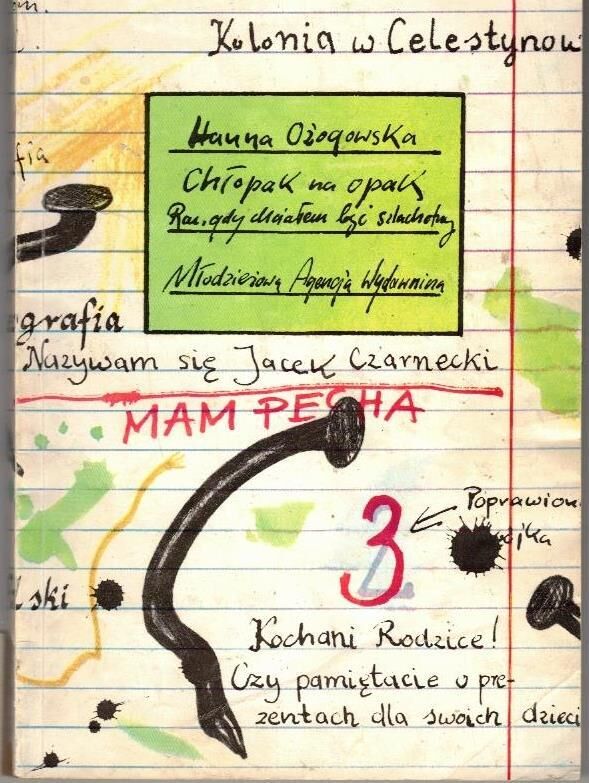 m.
Kolonia w Celestynow
fia
Hanna Ożogowska
Chłopak na opak
Raz, gdy chciałem być szlachetny
Młodzieżowa Agencja Wydawnicza
grafia
Nazywam się Jacek Czarnecki
MAM PECHA
3
Poprawion
ójka
lski
Kochani Rodzice!
Czy pamiętacie o pre-
zentach dla swoich dzieci